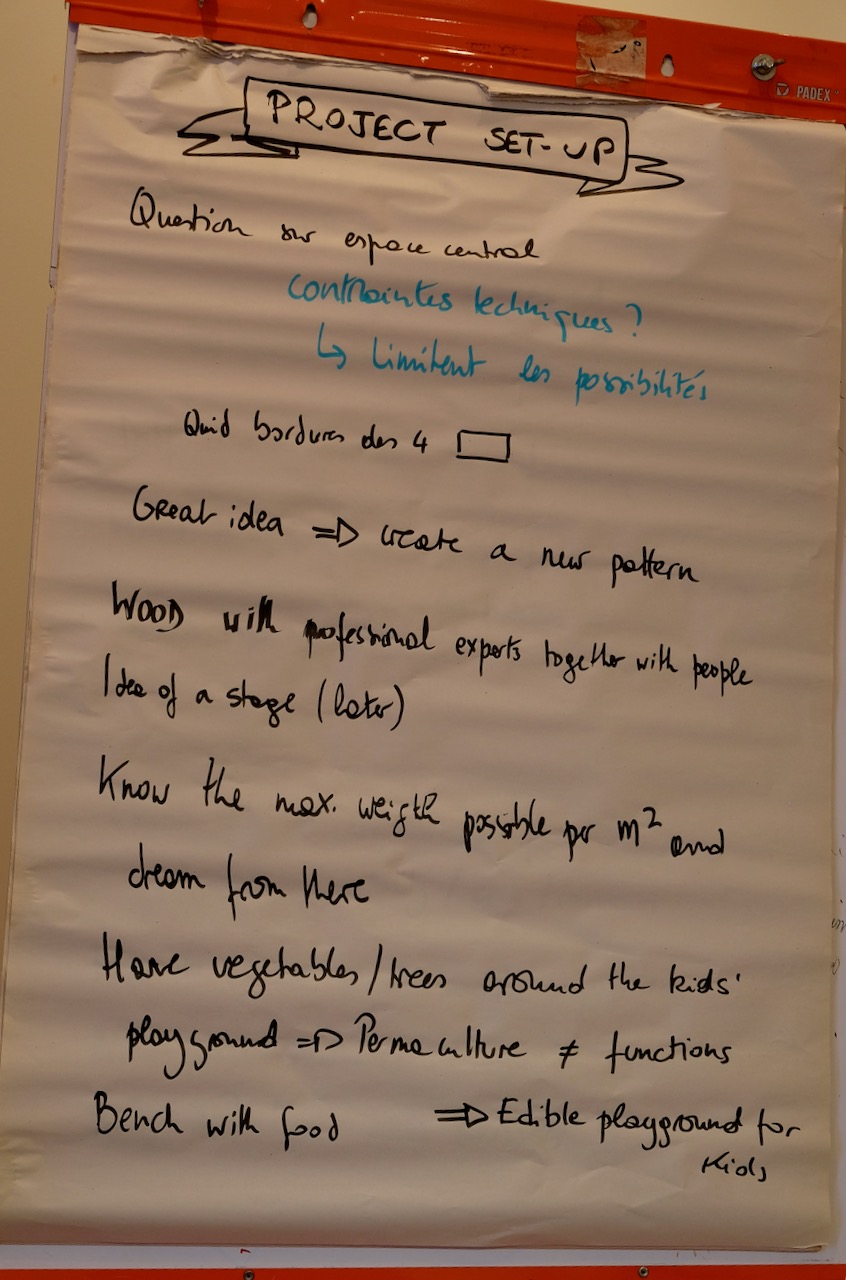 PADEX
PROJECT SET-UP
Question sur espace central
contraintes techniques ?
↳ Limitent les possibilités
Quid bordures des 4 ▭
Great idea ⇒ create a new pattern
WOOD with professional experts together with people
Idea of a stage (later)
Know the max. weigth possible per m² and
dream from there
Have vegetables/trees around the kids'
playground ⇒ Permaculture ≠ functions
Bench with food ⇒ Edible playground for
Kids